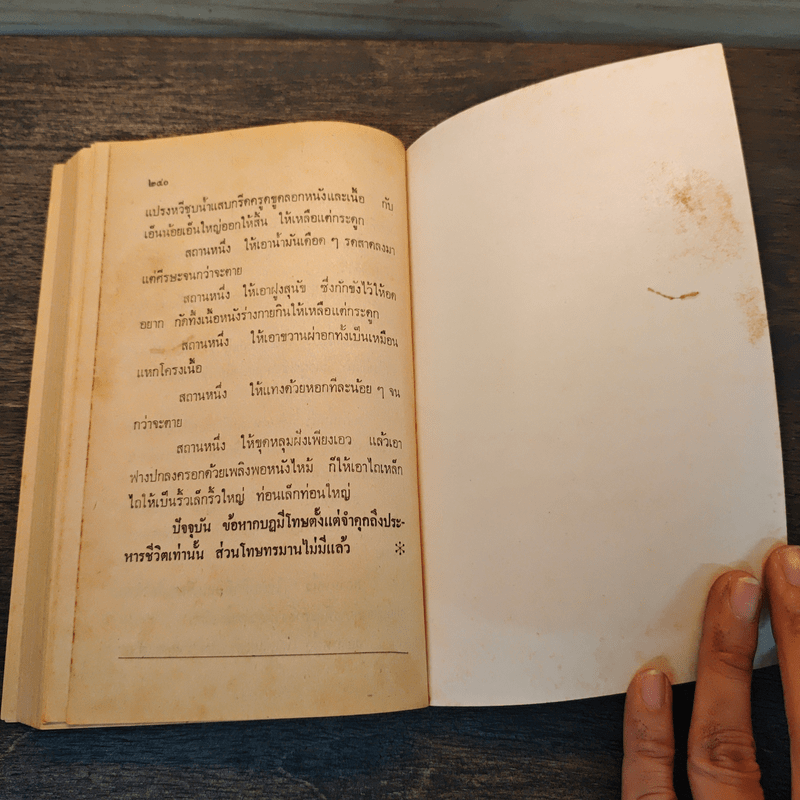 ๒๔๐
แปรงหวีชุบน้ำแสบกรีดครูดขูดลอกหนังและเนื้อ กับ
เอ็นน้อยเอ็นใหญ่ออกให้สิ้น ให้เหลือแต่กระดูก
สถานหนึ่ง ให้เอาน้ำมันเดือด ๆ รดสาดลงมา
แต่ศีรษะจนกว่าจะตาย
สถานหนึ่ง ให้เอาฝูงสุนัข ซึ่งกักขังไว้ให้อด
อยาก กัดทึ้งเนื้อหนังร่างกายกินให้เหลือแต่กระดูก
สถานหนึ่ง ให้เอาขวานผ่าอกทั้งเป็นเหมือน
แหกโครงเนื้อ
สถานหนึ่ง ให้แทงด้วยหอกทีละน้อย ๆ จน
กว่าจะตาย
สถานหนึ่ง ให้ขุดหลุมฝังเพียงเอว แล้วเอา
ฟางปกลงครอกด้วยเพลิงพอหนังไหม้ ก็ให้เอาไถเหล็ก
ไถให้เป็นริ้วเล็กริ้วใหญ่ ท่อนเล็กท่อนใหญ่
ปัจจุบัน ข้อหากบฏมีโทษตั้งแต่จำคุกถึงประ-
หารชีวิตเท่านั้น ส่วนโทษทรมานไม่มีแล้ว ※